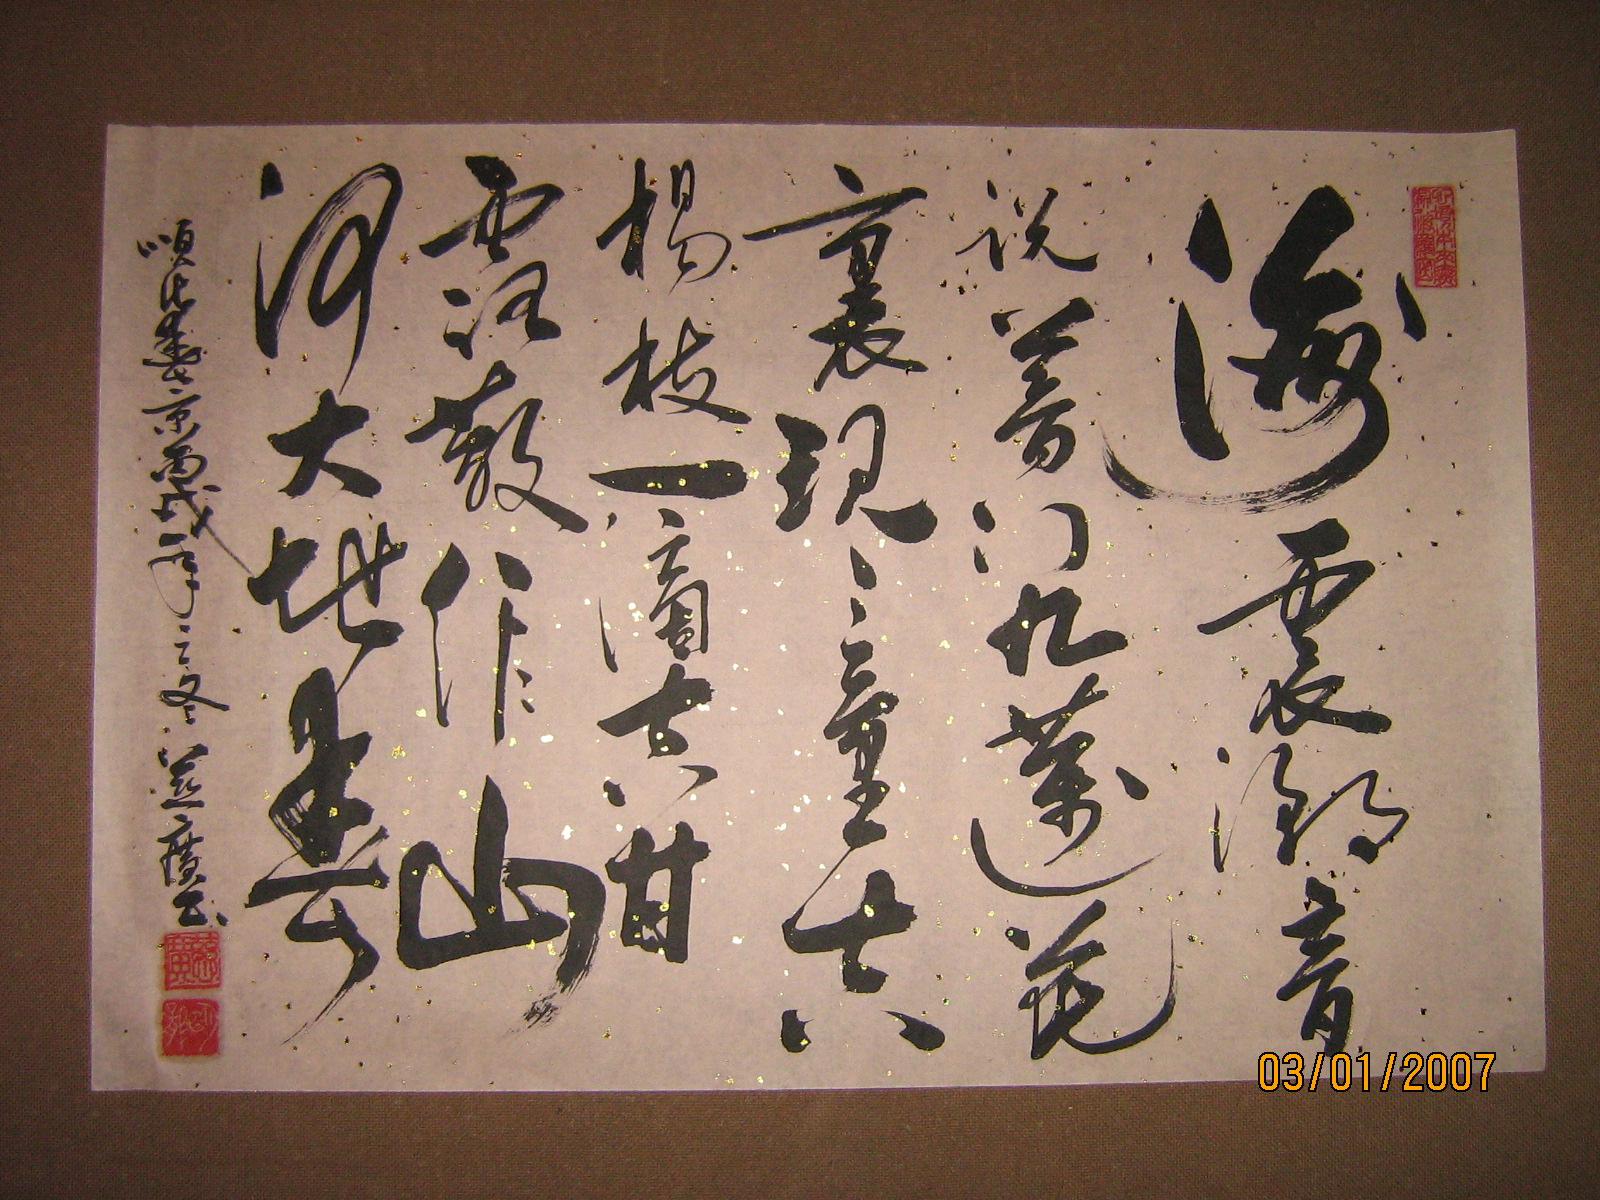 海震潮音
說普門九蓮花
裏現童真
楊枝一滴真甘
露散作山
河大地春
京丙戌年之冬慈廣書
03/01/2007